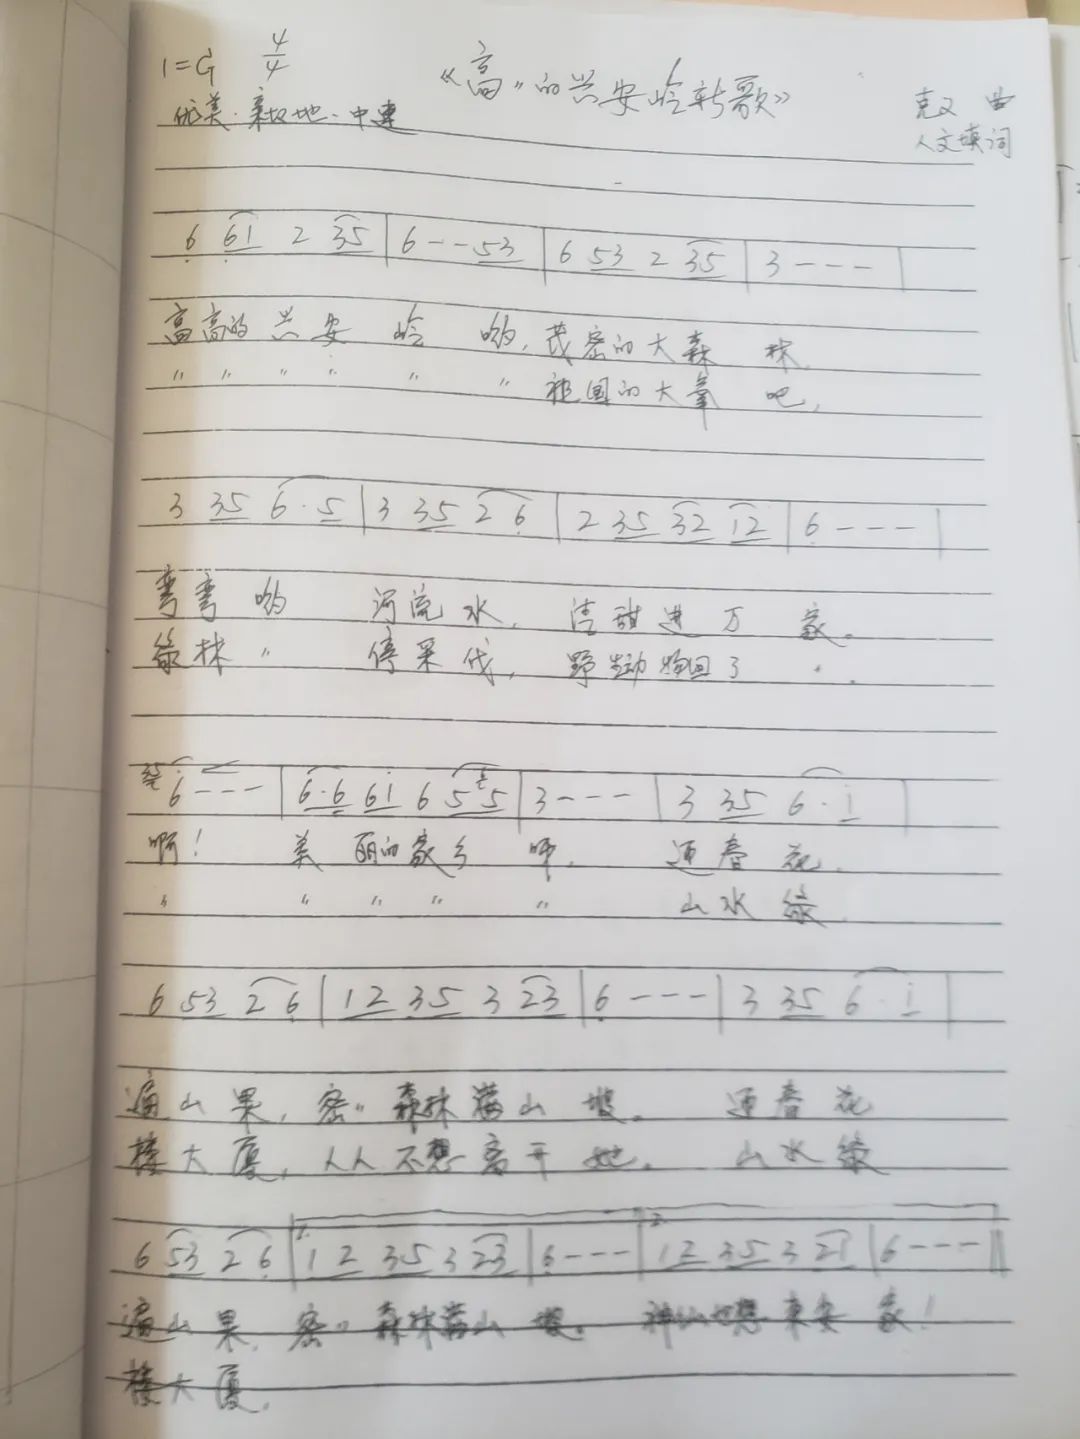 1=G 4/4 《高〃的兴安岭新歌》
优美·亲切地·中速 克义 曲
人文填词
6 61 2 35 | 6 - - 53 | 6 53 2 35 | 3 - - - |
高高的兴安岭哟,茂密的大森林,
〃 〃 〃 〃 〃 〃 祖国的大氧吧,
3 35 6·5 | 3 35 2 6 | 2 35 32 12 | 6 - - - |
弯弯哟河流水,清甜进万家。
绿林〃停采伐,野生动物回了·.
6 - - - | 6·6 61 6 5 5 | 3 - - - | 3 35 6·i |
啊!美丽的家乡呀,迎春花,
〃 〃 〃 〃 〃 山水绿,
6 53 2 6 | 12 35 3 23 | 6 - - - | 3 35 6·i |
遍山果,密〃森林满山坡。迎春花
楼大厦,人人不想离开她。山水绿
6 53 2 6 | 1. 12 35 3 23 | 6 - - - | 2. 12 35 3 21 | 6 - - - ‖
遍山果,密〃森林满山坡。神仙也想来安家!
楼大厦,